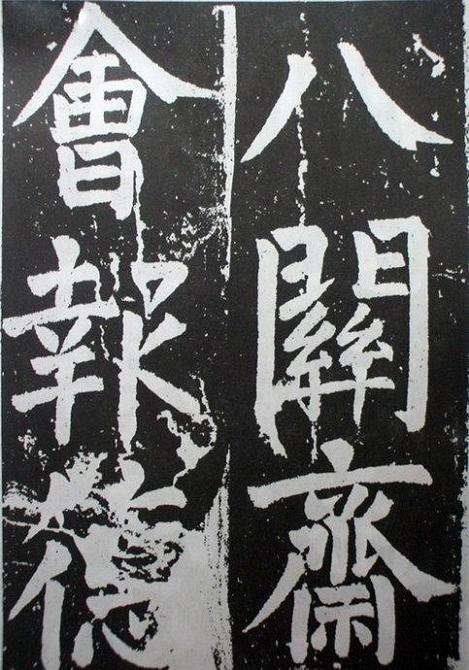 八關齋
會報德